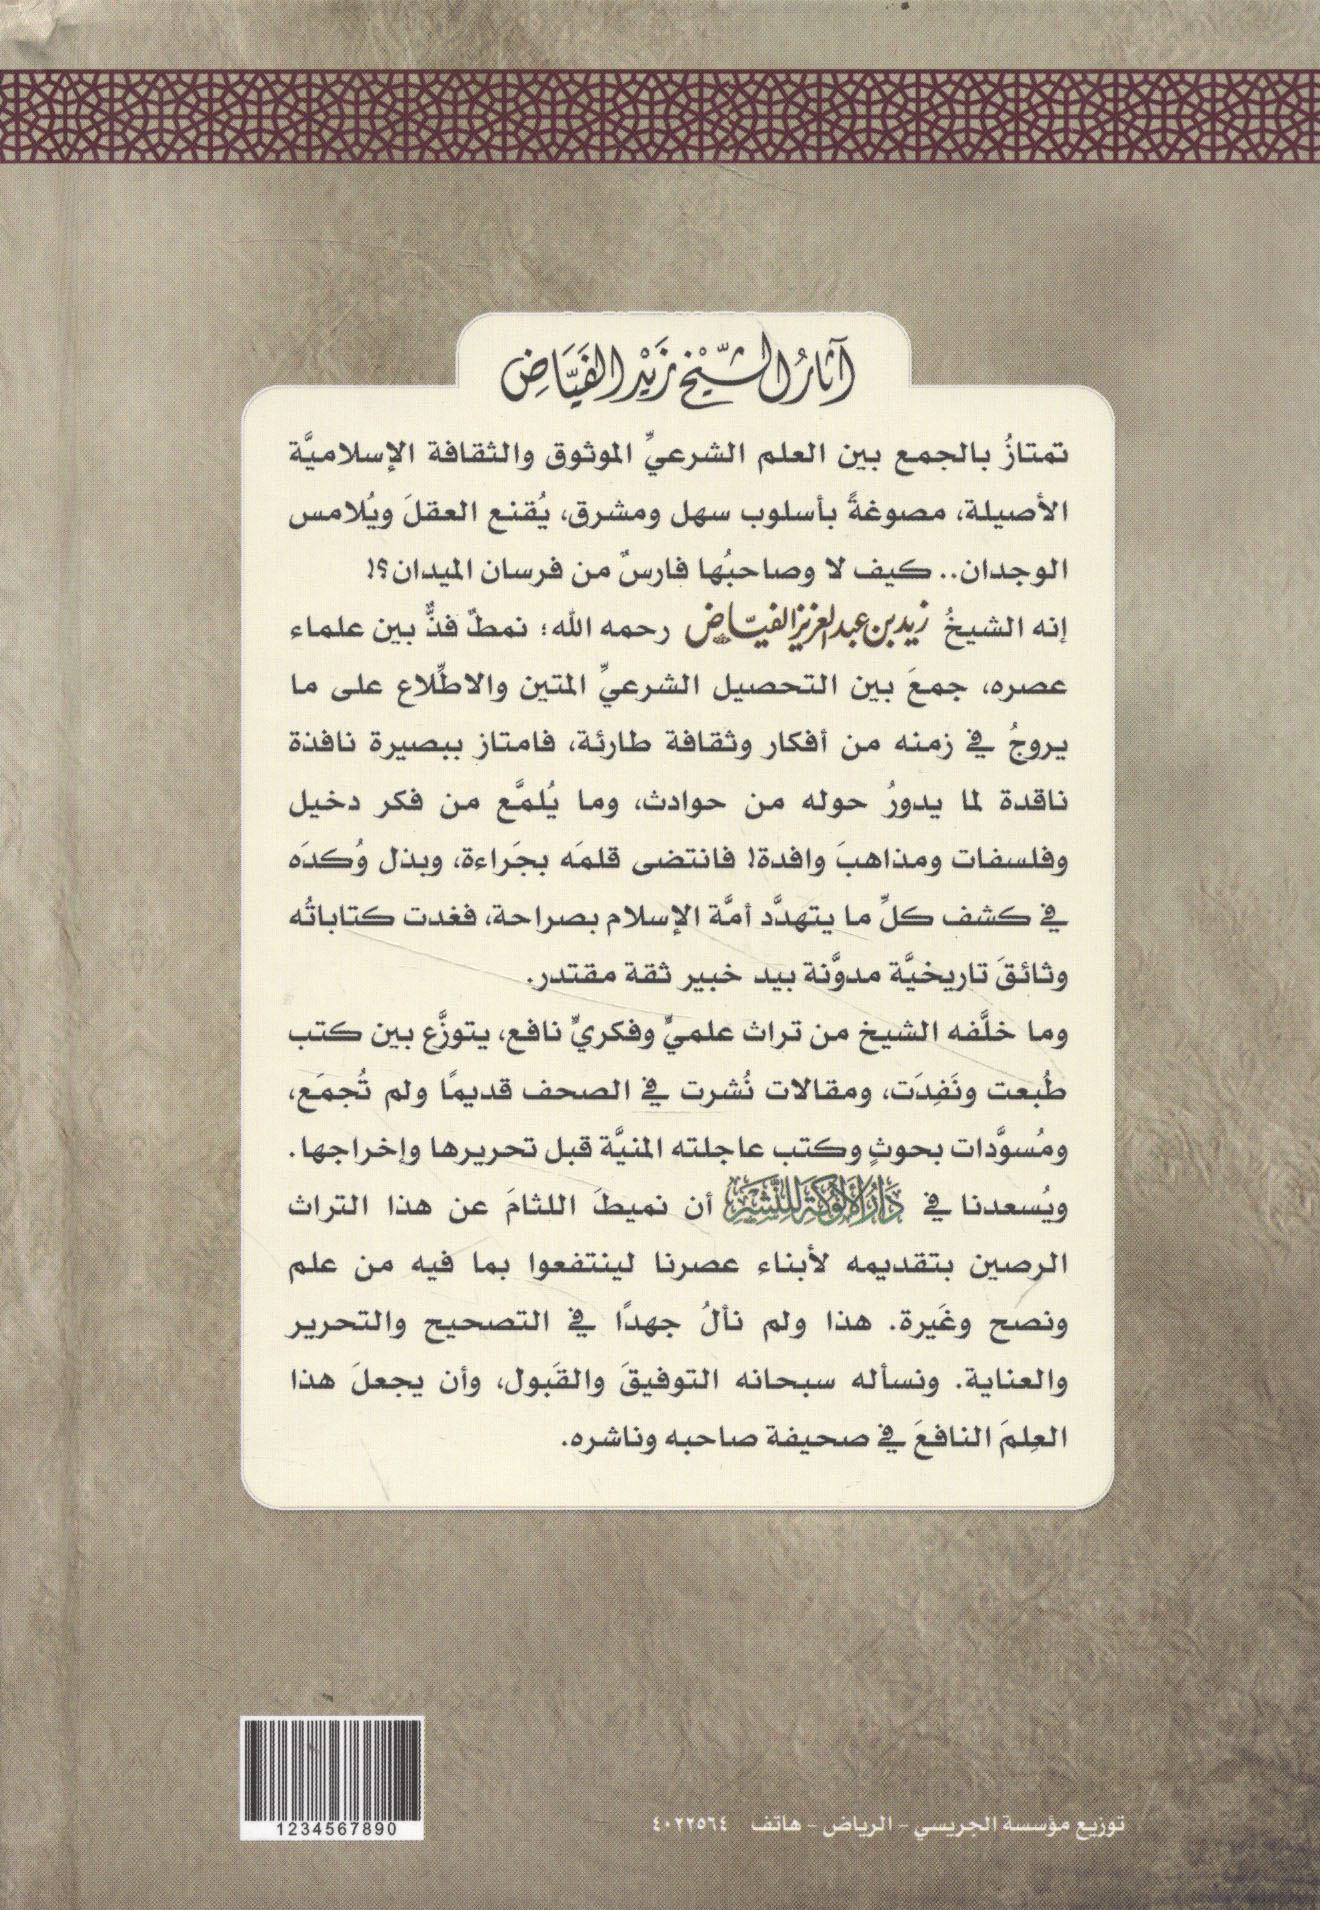 آثارُ الشَّيْخ زَيْد الفَيَّاضِ
تمتازُ بالجمع بين العلم الشرعيِّ الموثوق والثقافة الإسلاميَّة
الأصيلة، مصوغةً بأسلوب سهل ومشرق، يُقنع العقلَ ويُلامس
الوجدان.. كيف لا وصاحبُها فارسٌ من فرسان الميدان؟!
إنه الشيخُ زيد بن عبد العزيز الفيّاض رحمه الله؛ نمطٌ فذٌّ بين علماء
عصره، جمعَ بين التحصيل الشرعيِّ المتين والاطِّلاع على ما
يروجُ في زمنه من أفكار وثقافة طارئة، فامتاز ببصيرة نافذة
ناقدة لما يدورُ حوله من حوادث، وما يُلمَّع من فكر دخيل
وفلسفات ومذاهبَ وافدة! فانتضى قلمَه بجَراءة، وبذل وُكدَه
في كشف كلِّ ما يتهدَّد أمَّة الإسلام بصراحة، فغدت كتاباتُه
وثائقَ تاريخيَّة مدوَّنة بيد خبير ثقة مقتدر.
وما خلَّفه الشيخ من تراث علميٍّ وفكريٍّ نافع، يتوزَّع بين كتب
طُبعت ونَفِدَت، ومقالات نُشرت في الصحف قديمًا ولم تُجمَع،
ومُسوَّدات بحوثٍ وكتب عاجلته المنيَّة قبل تحريرها وإخراجها.
ويُسعدنا في دَارُ الأَلُوكَةِ لِلنَّشْرِ أن نميطَ اللثامَ عن هذا التراث
الرصين بتقديمه لأبناء عصرنا لينتفعوا بما فيه من علم
ونصح وغَيرة. هذا ولم نألُ جهدًا في التصحيح والتحرير
والعناية. ونسأله سبحانه التوفيقَ والقَبول، وأن يجعلَ هذا
العِلمَ النافعَ في صحيفة صاحبه وناشره.
1234567890
توزيع مؤسسة الجريسي - الرياض - هاتف ٤٠٢٢٥٦٤